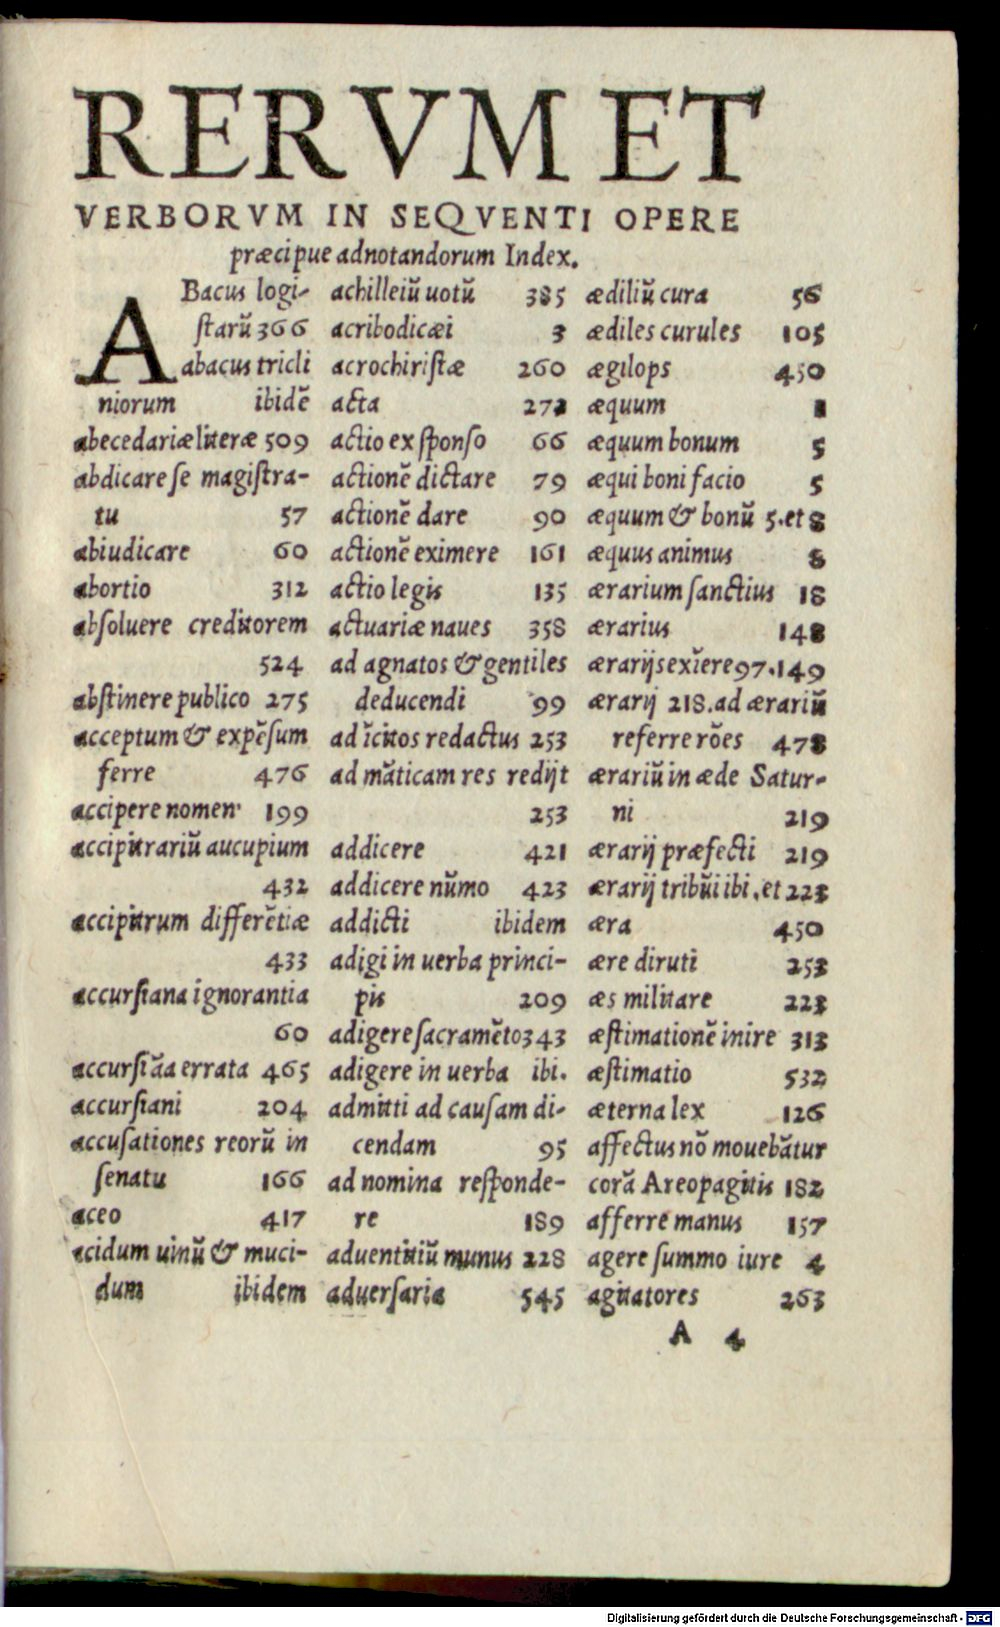 RERVM ET
VERBORVM IN SEQVENTI OPERE
præcipue adnotandorum Index.
ABacus logi-
ſtarũ 366
abacus tricli
niorum ibidẽ
abecedariæ literæ 509
abdicare ſe magiſtra-
tu 57
abiudicare 60
abortio 312
abſoluere creditorem
524
abſtinere publico 275
acceptum & expẽſum
ferre 476
accipere nomen 199
accipitrariũ aucupium
432
accipitrum differẽtiæ
433
accurſiana ignorantia
60
accurſiãa errata 465
accurſiani 204
accuſationes reorũ in
ſenatu 166
aceo 417
acidum uinũ & muci-
dum ibidem
achilleiũ uotũ 385
acribodicæi 3
acrochiriſtæ 260
acta 272
actio ex ſponſo 66
actionẽ dictare 79
actionẽ dare 90
actionẽ eximere 161
actio legis 135
actuariæ naues 358
ad agnatos & gentiles
deducendi 99
ad ĩcitos redactus 253
ad mãticam res redijt
253
addicere 421
addicere nũmo 423
addicti ibidem
adigi in uerba princi-
pis 209
adigere ſacramẽto 343
adigere in uerba ibi.
admitti ad cauſam di-
cendam 95
ad nomina reſponde-
re 189
aduentitiũ munus 228
aduerſaria 545
ædiliũ cura 56
ædiles curules 105
ægilops 450
æquum 1
æquum bonum 5
æqui boni facio 5
æquum & bonũ 5.et 8
æquus animus 8
ærarium ſanctius 18
ærarius 148
ærarijs exĩere 97.149
ærarij 218.ad ærariũ
referre rões 478
ærariũ in æde Satur-
ni 219
ærarij præfecti 219
ærarij tribũi ibi.et 223
æra 450
ære diruti 253
æs militare 223
æſtimationẽ inire 313
æſtimatio 532
æterna lex 126
affectus nõ mouebãtur
corã Areopagitis 182
afferre manus 157
agere ſummo iure 4
agitatores 263
A 4
Digitalisierung gefördert durch die Deutsche Forschungsgemeinschaft - DFG